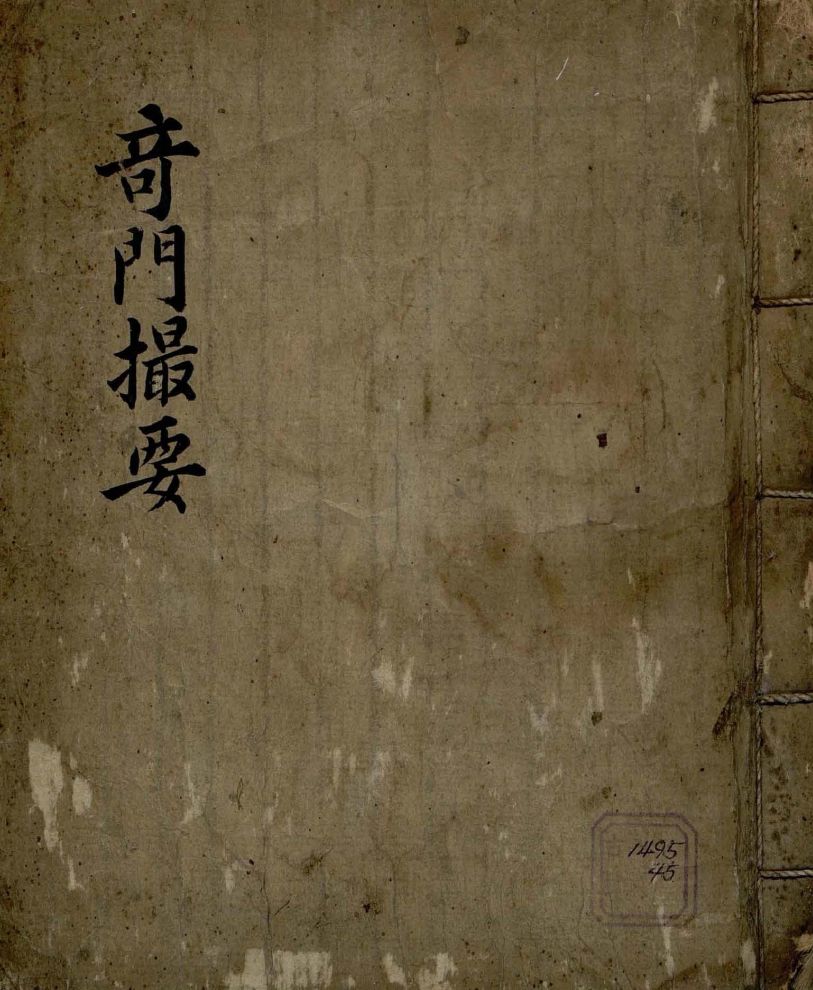 竒門撮要
1495
45